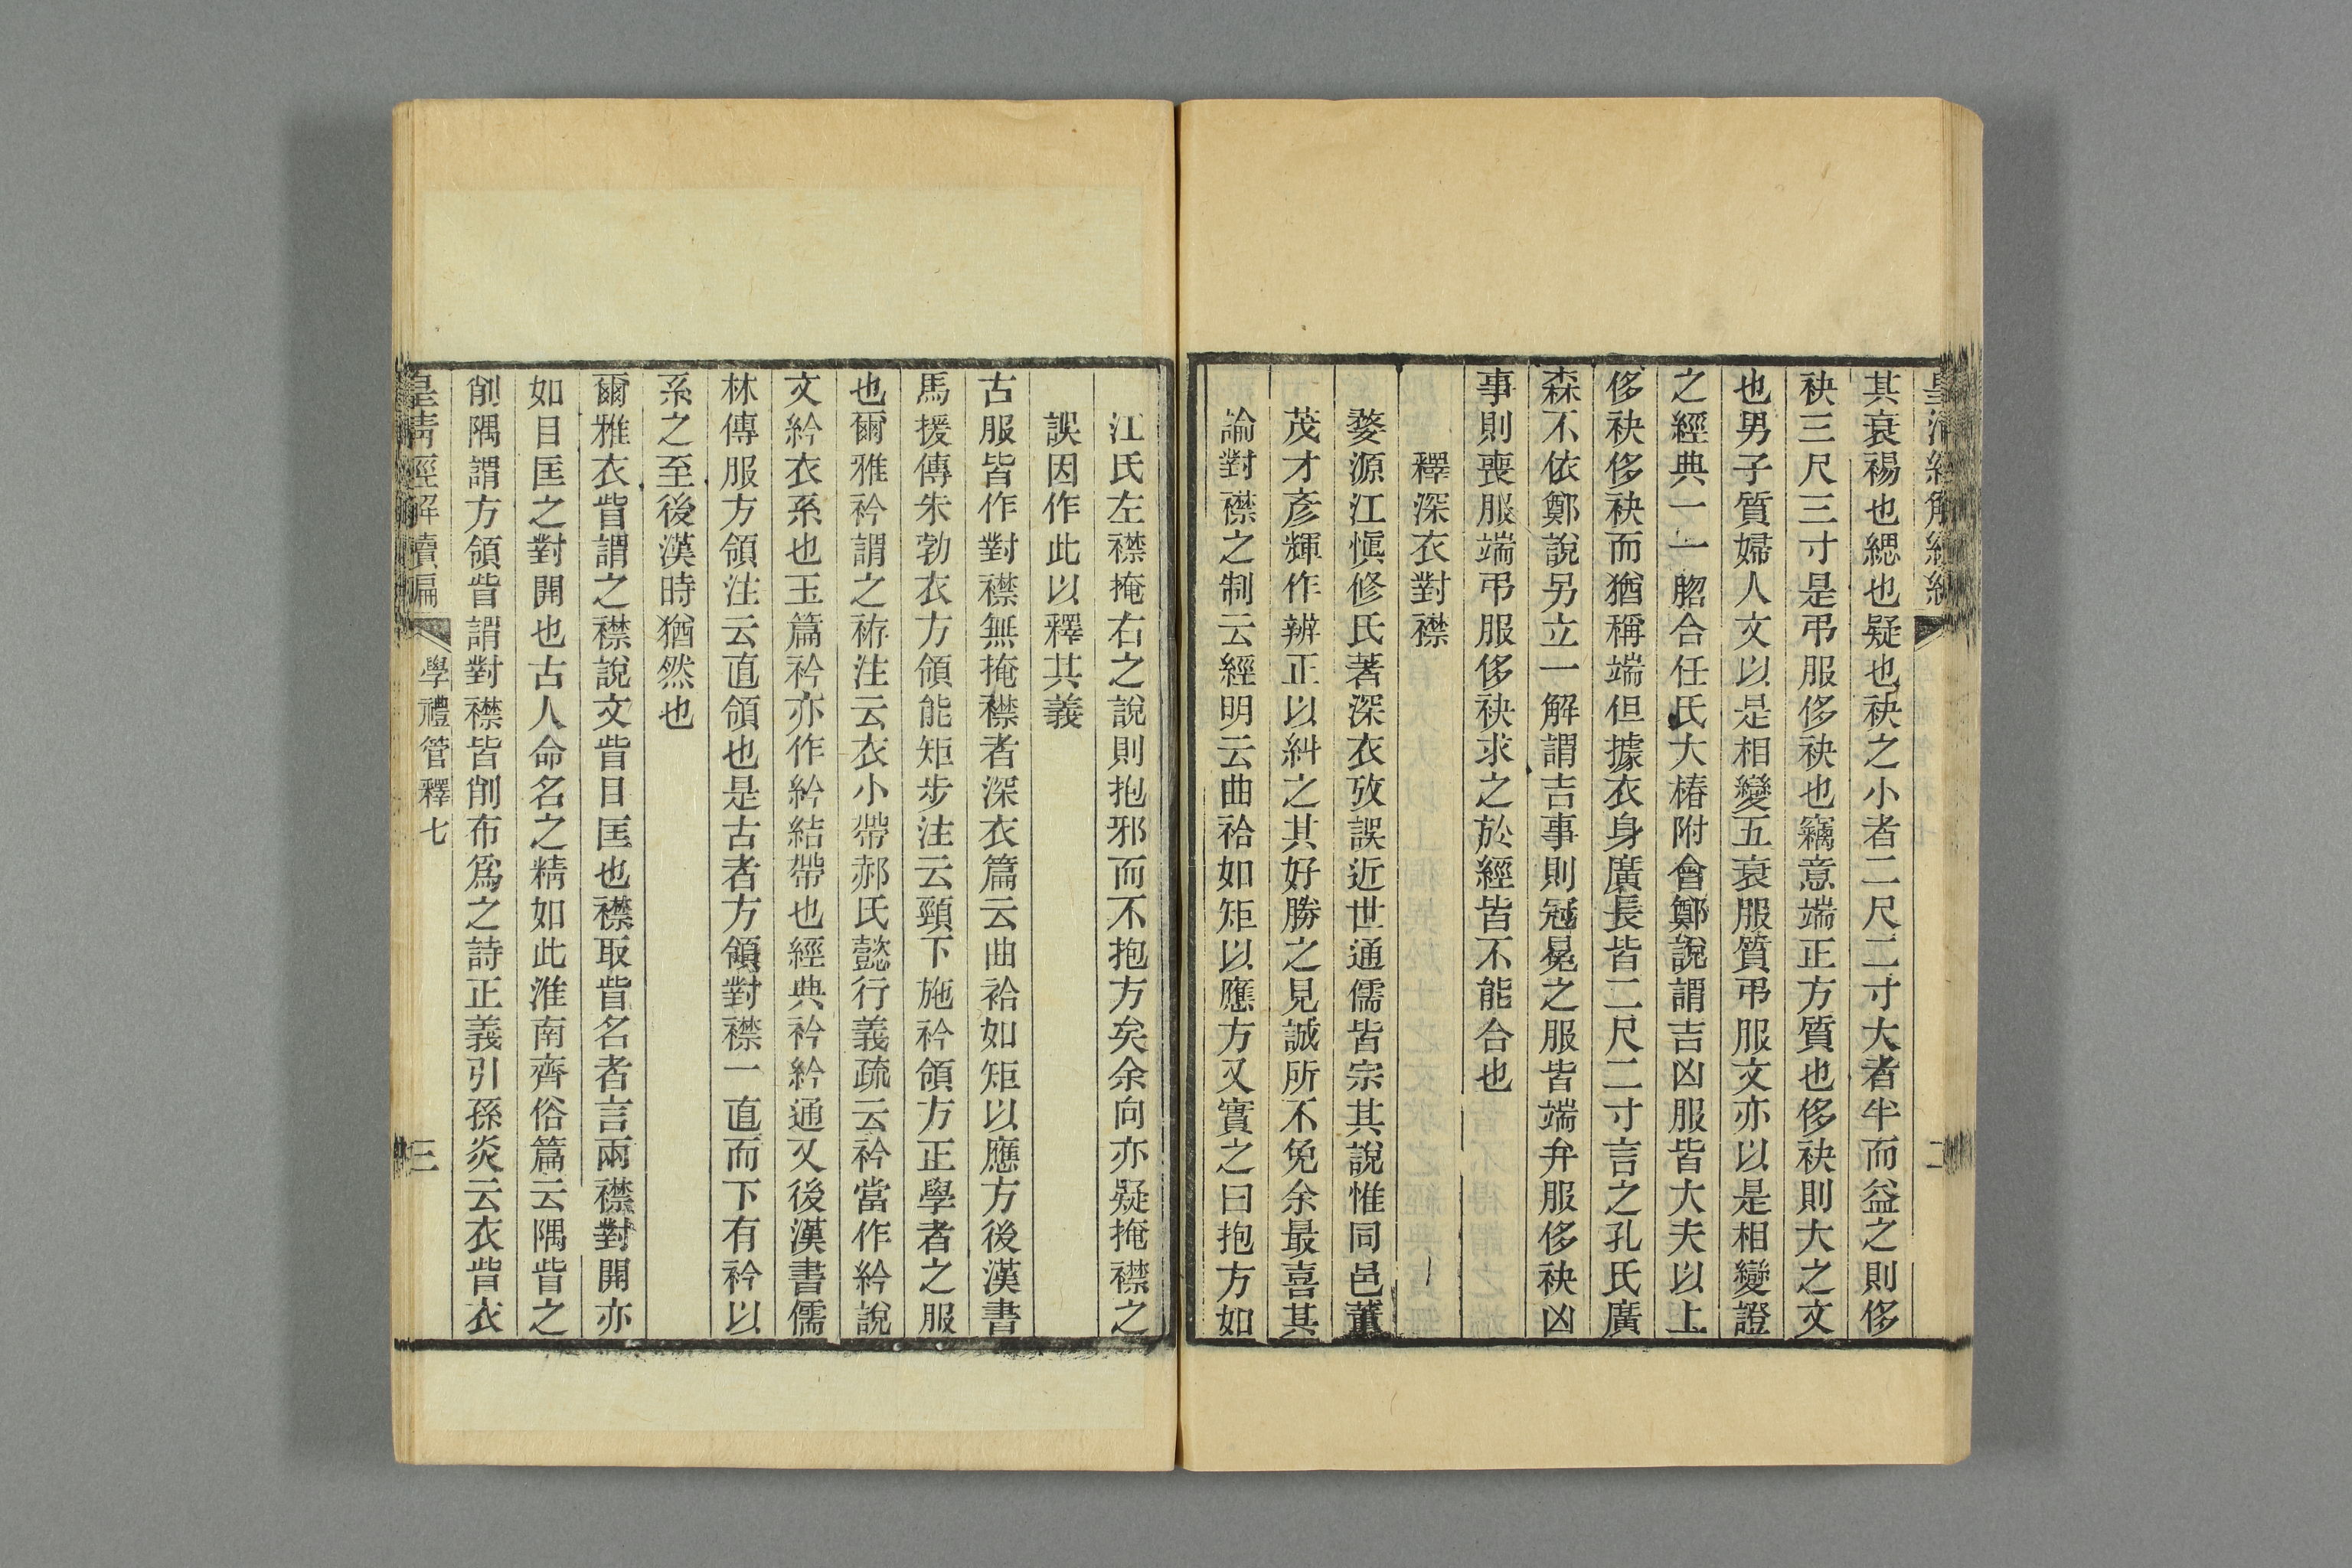 其衰裼也緦也疑也袂之小者二尺二寸大者半而益之則侈
袂三尺三寸是弔服侈袂也竊意端正方質也侈袂則大之文
也男子質婦人文以是相變五衰服質弔服文亦以是相變證
之經典一一脗合任氏大椿附會鄭說謂吉凶服皆大夫以上
侈袂侈袂而猶稱端但據衣身廣長皆二尺二寸言之孔氏廣
森不依鄭說另立一解謂吉事則冠冕之服皆端弁服侈袂凶
事則喪服端弔服侈袂求之於經皆不能合也
釋深衣對襟
婺源江愼修氏著深衣攷誤近世通儒皆宗其說惟同邑董
茂才彥輝作辨正以糾之其好勝之見誠所不免余最喜其
論對襟之制云經明云曲袷如矩以應方又實之曰抱方如
江氏左襟掩右之說則抱邪而不抱方矣余向亦疑掩襟之
誤因作此以釋其義
古服皆作對襟無掩襟者深衣篇云曲袷如矩以應方後漢書
馬援傳朱勃衣方領能矩步注云頸下施衿領方正學者之服
也爾雅衿謂之袸注云衣小帶郝氏懿行義疏云衿當作紟說
文紟衣系也玉篇衿亦作紟結帶也經典衿紟通又後漢書儒
林傳服方領注云直領也是古者方領對襟一直而下有衿以
系之至後漢時猶然也
爾雅衣眥謂之襟說文眥目匡也襟取眥名者言兩襟對開亦
如目匡之對開也古人命名之精如此淮南齊俗篇云隅眥之
削隅謂方領眥謂對襟皆削布爲之詩正義引孫炎云衣眥衣
皇淸經解續編
學禮管釋七
三